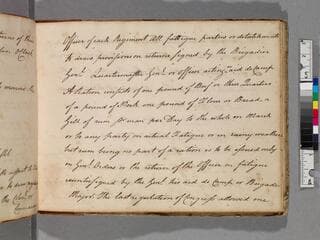 Officer of each Regiment All fattigue parties or detatchments
to draw provisions on returns signed by the Brigadier
Genl. Quartermaster Genl. or officer acting aid de Camp
A Ration consists of one pound of Beef or three Quarters
of a pound of Pork one pound of Flour or Bread a
Gill of rum pr. man per Day to the whole on March
or to any party on actual Fatigue or in rainy weather
but rum being no part of a ration is to be issued only
on Genl. Orders or the return of the Officer on fatigue
countersigned by the Genl. his aid de Camp or Brigade
Major. The last regulation of Congress allowed one